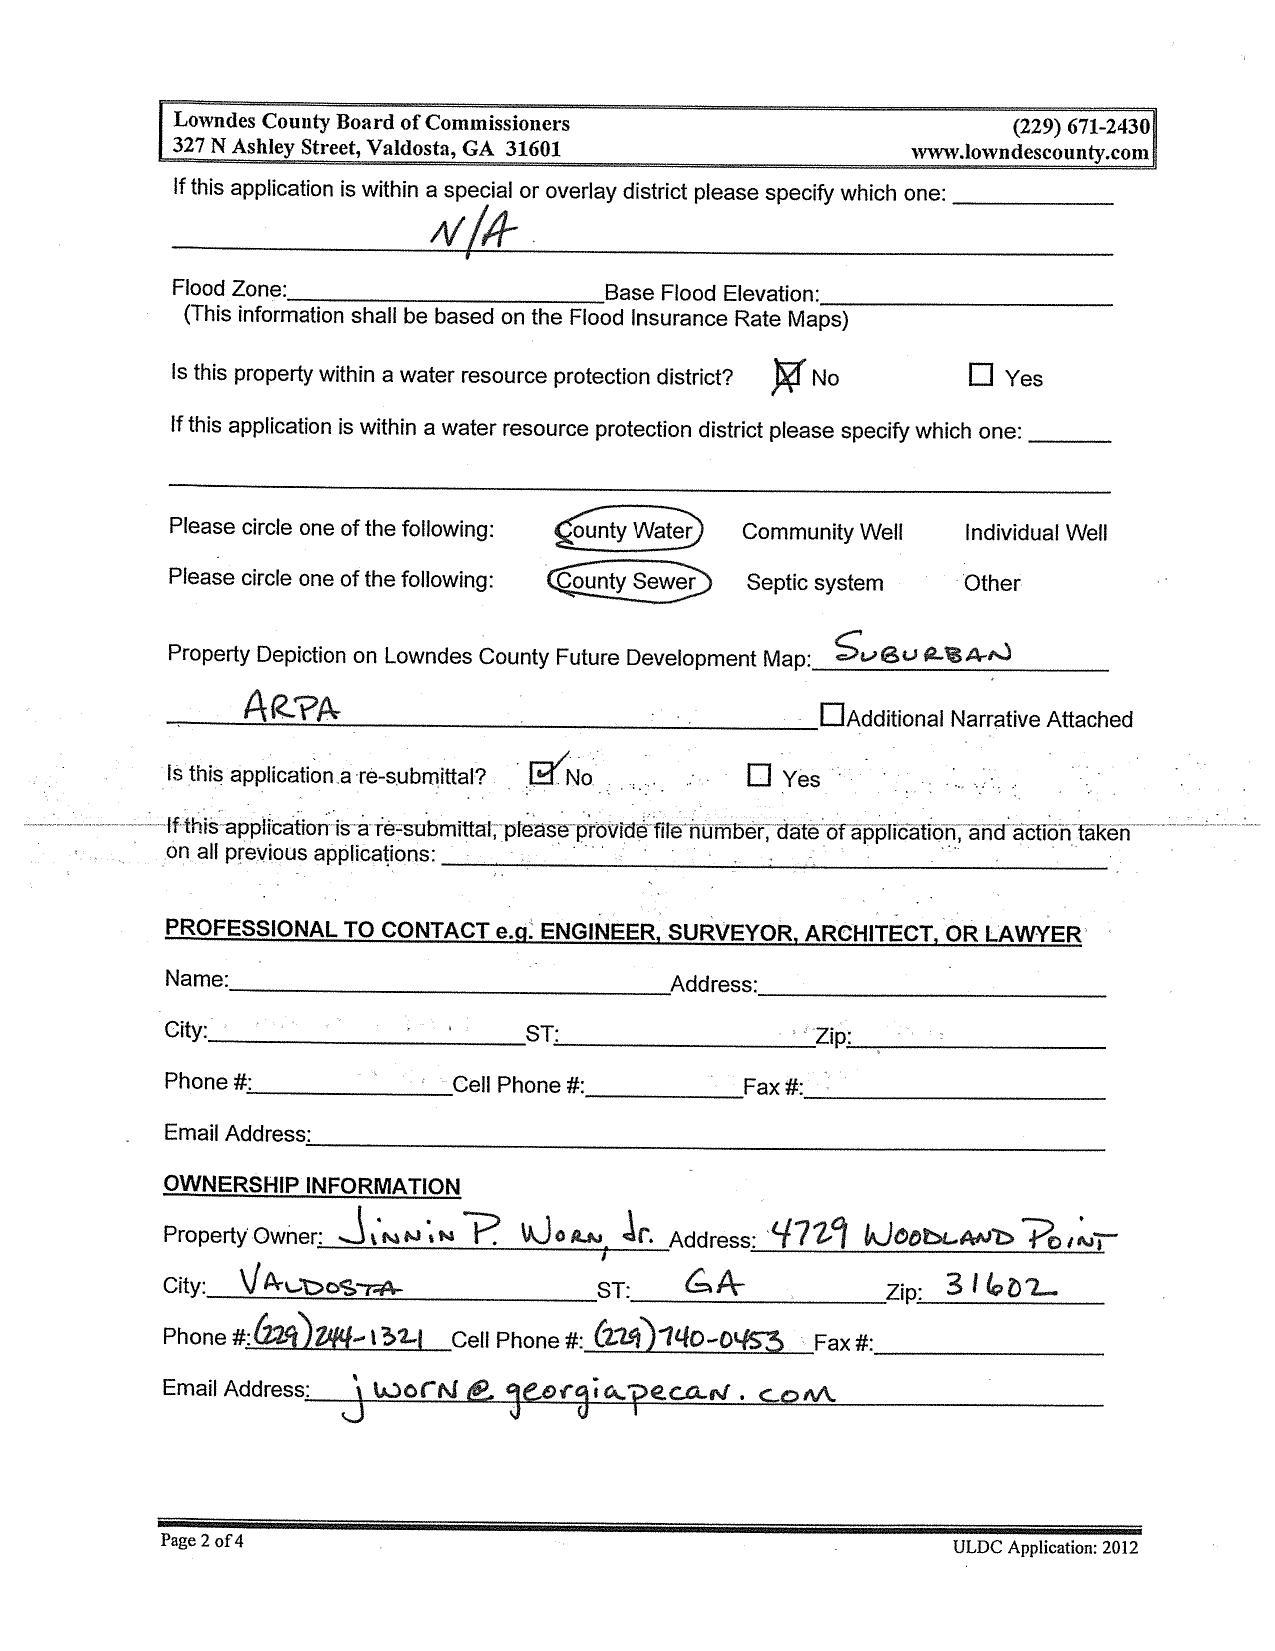 Lowndes County Board of Commissioners (229) 671-2430
327 N Ashley Street, Valdosta, GA 31601 www.lowndescounty.com
If this application is within a special or overlay district please specify which one:
N/A
Flood Zone: Base Flood Elevation:
(This information shall be based on the Flood Insurance Rate Maps)
Is this property within a water resource protection district? No Yes
If this application is within a water resource protection district please specify which one:
Please circle one of the following: County Water Community Well Individual Well
Please circle one of the following: County Sewer Septic system Other
Property Depiction on Lowndes County Future Development Map: SUBURBAN
ARPA Additional Narrative Attached
Is this application a re-submittal? No Yes
If this application is a re-submittal, please provide file number, date of application, and action taken
on all previous applications:
PROFESSIONAL TO CONTACT e.g. ENGINEER, SURVEYOR, ARCHITECT, OR LAWYER
Name: Address:
City: ST: Zip:
Phone #: Cell Phone #: Fax #:
Email Address:
OWNERSHIP INFORMATION
Property Owner: Jinnin P. Worn, Jr. Address: 4729 WOODLAND POINT
City: VALDOSTA ST: GA Zip: 31602
Phone #: (229) 244-1321 Cell Phone #: (229) 740-0453 Fax #:
Email Address: jworn@georgiapecan.com
Page 2 of 4 ULDC Application: 2012